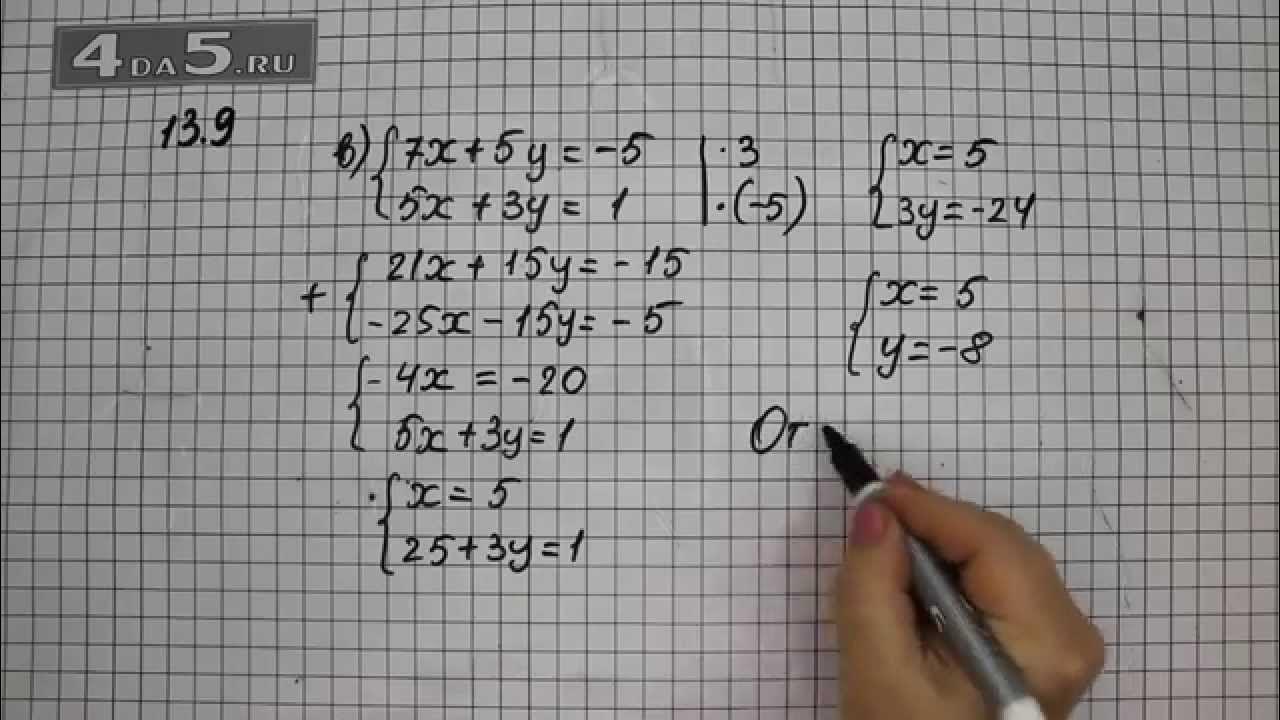 4DA5.RU
13.9
в) { 7x + 5y = -5 | · 3
{ 5x + 3y = 1 | · (-5)
+ { 21x + 15y = -15
{ -25x - 15y = -5
{ -4x = -20
{ 5x + 3y = 1
{ x = 5
{ 25 + 3y = 1
{ x = 5
{ 3y = -24
{ x = 5
{ y = -8
От